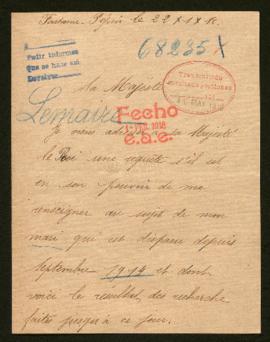 le 22
68235 X
Pedir informes
que se hace así
Sa Majesté
Lemaire
Fecho
1918
e.a.e.
Je viens sa Majesté
le Roi une requête s'il est
en son pouvoir de me
renseigner au sujet de mon
mari qui est disparu depuis
Septembre 1914 et dont
voici le résultat des recherche
faites jusqu'à ce jour.